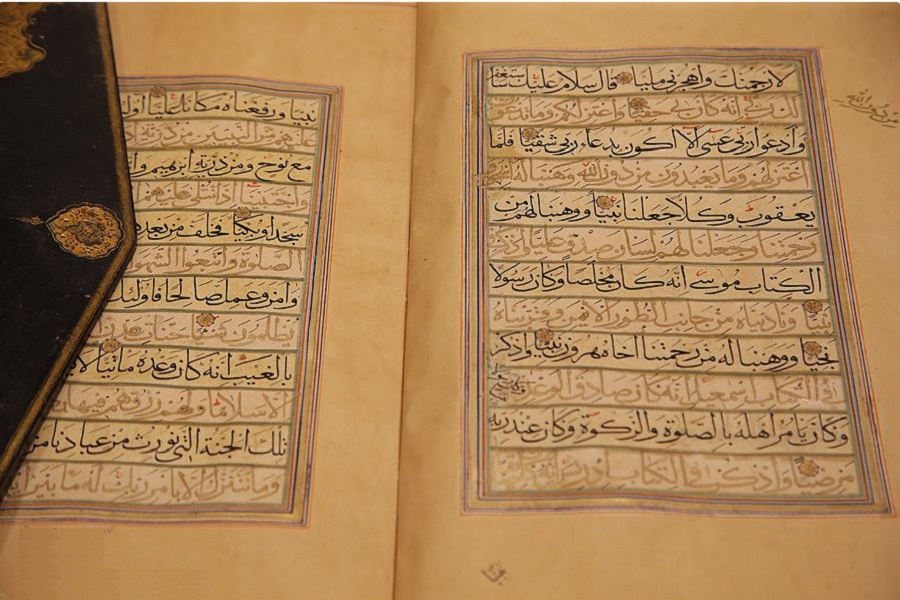 لارجمنك واهجرني مليا قال سلام عليك ساستغفر
لك ربي انه كان بي حفيا واعتزلكم وما تدعون
من دون الله
وادعوا ربي عسى الا اكون بدعاء ربي شقيا فلما
اعتزلهم وما يعبدون من دون الله وهبنا له
يعقوب وكلا جعلنا نبيا ووهبنا لهم من
رحمتنا وجعلنا لهم لسان صدق عليا
الكتاب موسى انه كان مخلصا وكان رسولا
نبيا وناديناه من جانب الطور الايمن وقربناه
نجيا ووهبنا له من رحمتنا اخاه هرون نبيا واذكر
في الكتاب اسمعيل انه كان صادق الوعد
وكان يامر اهله بالصلوة والزكوة وكان عند ربه
مرضيا واذكر في الكتاب ادريس
نبيا ورفعناه مكانا عليا
عليهم من النبيين من ذرية
مع نوح ومن ذرية ابرهيم
واجتبينا اذا تتلى عليهم
سجدا وبكيا فخلف من بعد
الصلوة واتبعوا الشهو
وامن وعمل صالحا فاولئك
يظلمون شيئا جنات عدن
بالغيب انه كان وعده ماتيا
الا سلاما ولهم رزقهم فيها
تلك الجنة التي نورث من عبادنا من
وما نتنزل الا بامر ربك له ما بين